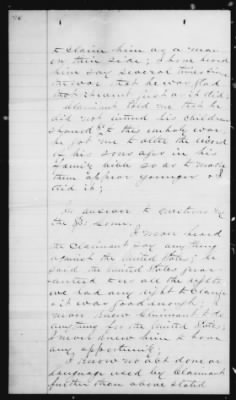 to claim him as a man
on their side; I have heard
him say several times since
the war that he was glad
that it went just as it did.
Claimant told me that he
did not intend his children
should go to this unholy war
he got me to alter the record
of his sons ages in his
family bible so as to make
them appear younger
In answer to questions by
the Com
I never heard
the claimant say anything
against the United States; he
said the United States guar-
anteed to us all the rights
we had any right to claim
& it was good enough; I
never knew claimant to do
anything for the United States;
I never knew him to have
any opportunity;
I know no act done or
language used by claimant
further than above stated